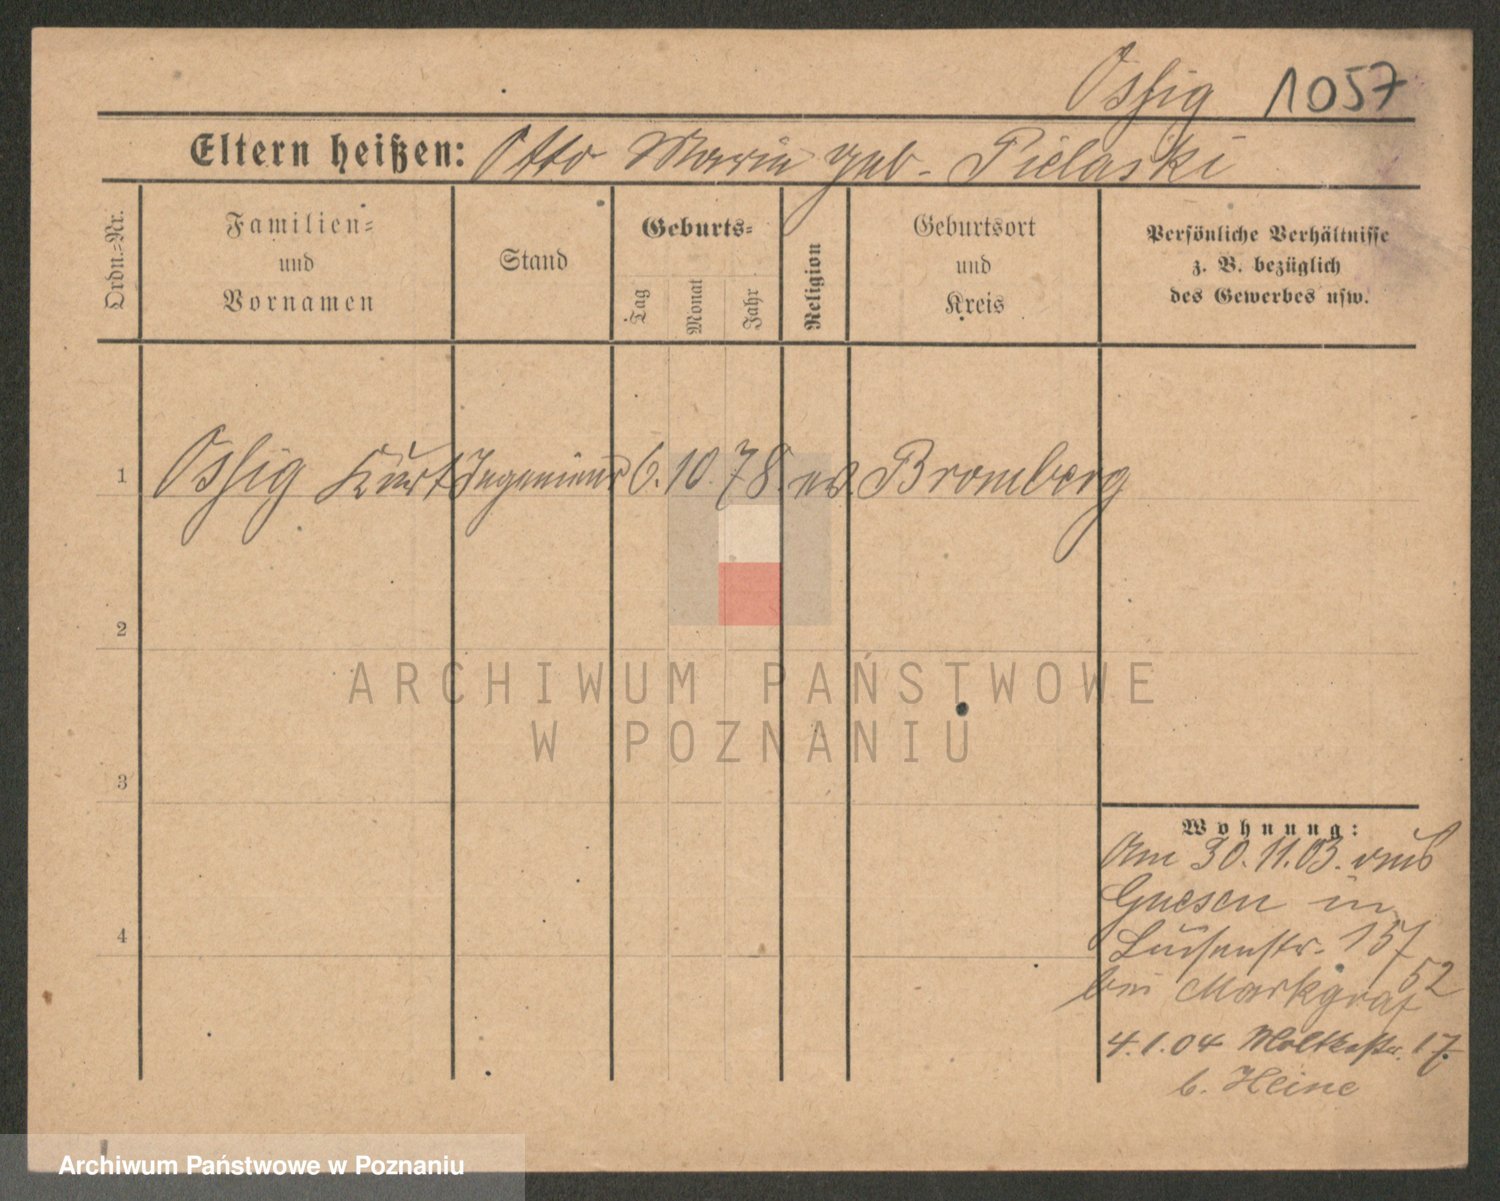 Ossig 1057
Eltern heißen: Otto Maria geb. Pielaski
Ordn.-Nr.
Familien-
und
Vornamen
Stand
Geburts-
Tag
Monat
Jahr
Religion
Geburtsort
und
Kreis
Persönliche Verhältnisse
z. B. bezüglich
des Gewerbes usw.
1 Ossig Kurt Ingenieur 6. 10. 78. ev. Bromberg
2
ARCHIWUM PAŃSTWOWE
W POZNANIU
3
Wohnung:
Am 30.11.03. aus
Gnesen in
Luisenstr. 157
52
bei Markgraf
4
4.1.04 Moltkestr. 17.
b. Heine
Archiwum Państwowe w Poznaniu